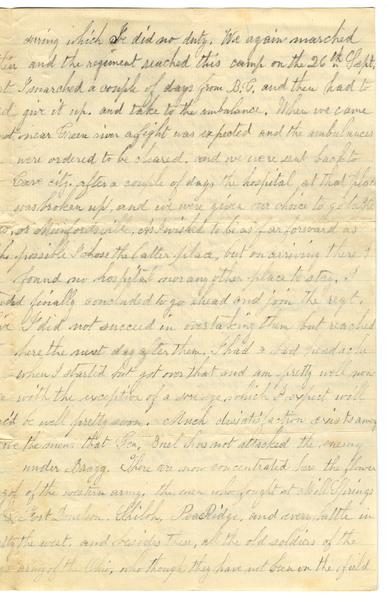 during which I did no duty. We again marched
and the regiment reached this camp on the 26th Sept,
I marched a couple of days from B.G. and then had to
give it up. and take to the ambulance. When we came
near Green river a fight was expected and the ambulances
were ordered to be cleared. and we were sent back to
Cave city. after a couple of days the hospital, at that place
was broken up, and we were given our choice to go to
or Munfordsville, as I wished to be as far forward as
possible I chose the latter place, but on arriving there I
found no hospital nor any other place to stay. I
finally concluded to go ahead and join the regt.
I did not succeed in overtaking them but reached
here the next day after them. I had a bad headache
when I started but got over that and am pretty well now
with the exception of a which I expect will
be well pretty soon. Much disatisfaction exists among
the mens that Gen. Buel has not attacked the enemy
under Bragg. There are now concentrated here the flower
of the western army, the men who fought at Mill Springs
Fort Donelson. Shiloh, Pea Ridge, and every battle in
the west. and besides these, all the old soldiers of the
army of the Ohio, who though they have not been on the field